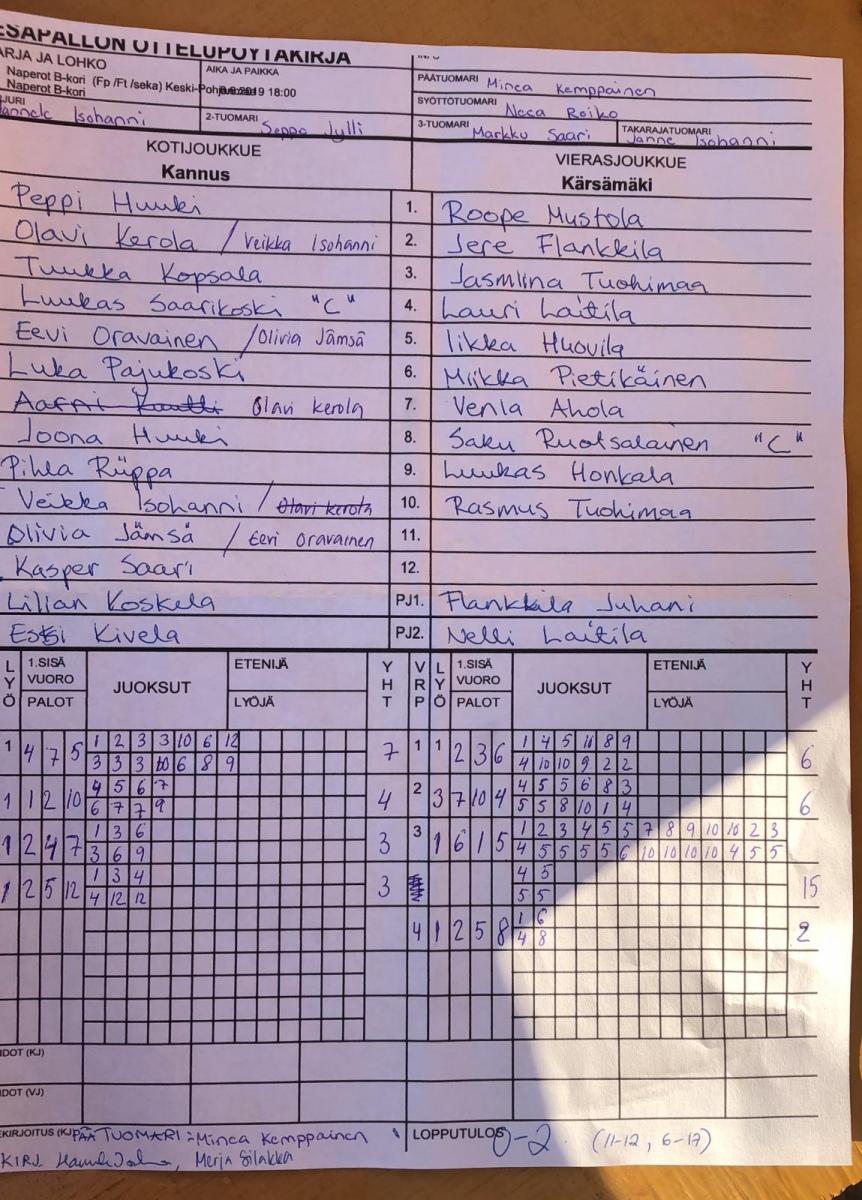 ESAPALLON OTTELUPÖYTÄKIRJA
ARJA JA LOHKO
Naperot B-kori (Fp /Ft /seka) Keski-Poh
Naperot B-kori
AIKA JA PAIKKA
2019 18:00
PÄÄTUOMARI Minea Kemppainen
SYÖTTÖTUOMARI Neea Roiko
JURI
Isohanni
2-TUOMARI Seppo Jylli
3-TUOMARI Markku Saari
TAKARAJATUOMARI Janne Isohanni
KOTIJOUKKUE
Kannus
VIERASJOUKKUE
Kärsämäki
Peppi Huuki 1. Roope Mustola
Olavi Kerola / Veikka Isohanni 2. Jere Flankkila
Tuukka Kopsala 3. Jasmiina Tuohimaa
Luukas Saarikoski "C" 4. Lauri Laitila
Eevi Oravainen / Olivia Jämsä 5. Iikka Huovila
Luka Pajukoski 6. Miikka Pietikäinen
Olavi Kerola 7. Venla Ahola
Joona Huuki 8. Saku Ruotsalainen "C"
Pihla Riippa 9. Luukas Honkala
Veikka Isohanni / Olavi kerola 10. Rasmus Tuohimaa
Olivia Jämsä / Eevi Oravainen 11.
Kasper Saari 12.
Lilian Koskela PJ1. Flankkila Juhani
Essi Kivela PJ2. Nelli Laitila
LYÖ 1.SISÄ VUORO PALOT JUOKSUT ETENIJÄ LYÖJÄ YHT VRP LYÖ 1.SISÄ VUORO PALOT JUOKSUT ETENIJÄ LYÖJÄ YHT
1 4 7 5 1 2 3 3 10 6 12 7 1 1 2 3 6 1 4 5 10 8 9 6
3 3 3 10 6 8 9 4 10 10 9 2 2
1 1 2 10 4 5 6 7 4 2 3 7 10 4 4 5 5 6 8 3 6
6 7 7 9 5 5 8 10 1 4
1 2 4 7 1 3 6 3 3 1 6 1 5 1 2 3 4 5 5 7 8 9 10 10 2 3
3 6 9 4 5 5 5 5 6 10 10 10 10 4 5 5
1 2 5 12 1 3 4 3 4 5 15
4 12 12 5 5
4 1 2 5 8 1 6 2
4 8
IDOT (KJ)
IDOT (VJ)
EKIRJOITUS (KJ PÄÄTUOMARI: Minea Kemppainen
LOPPUTULOS 0-2 (11-12, 6-17)
KIRJ. Merja Silakka